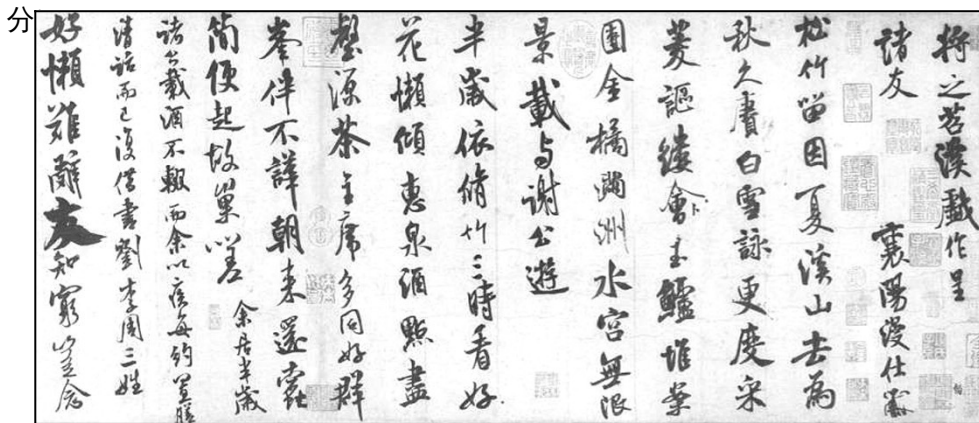 分
將之苕溪戲作呈
諸友 襄陽漫仕黻
松竹留因夏溪山去為
秋久賡白雪詠更度采
菱謳縷會玉鱸堆案
團金橘滿洲水宮無限
景載與謝公遊
半歲依脩竹三時看好
花懶傾惠泉酒點盡
壑源茶主席多同好群
峯伴不譁朝來還蠹
簡便起故巢嗟 余居半歲
諸公載酒不輟而余以疾每約置膳
清話而已復借書劉李周三姓
好懶難辭友知窮豈念